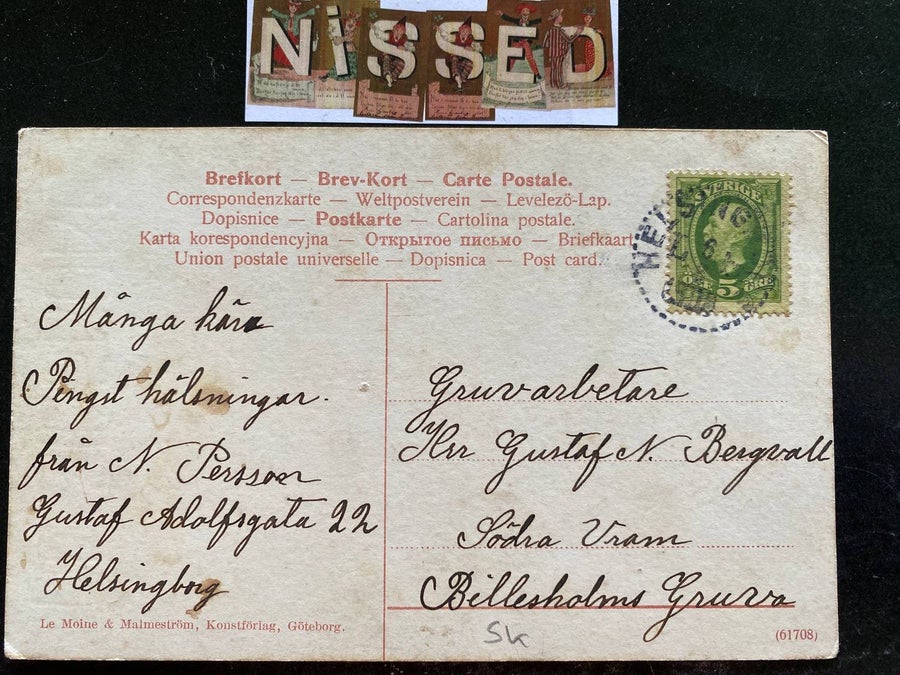 NiSSED
Brefkort — Brev-Kort — Carte Postale.
Correspondenzkarte — Weltpostverein — Levelező-Lap.
Dopisnice — Postkarte — Cartolina postale.
Karta korespondencyjna — Открытое письмо — Briefkaart
Union postale universelle — Dopisnica — Post card.
SVERIGE
5
ÖRE
HELSING
Många kära
Pingst hälsningar.
från N. Persson
Gustaf Adolfsgata 22
Helsingborg
Gruvarbetare
Herr Gustaf N. Bergvall
Södra Vram
Billesholms Gruva
Le Moine & Malmeström, Konstförlag, Göteborg.
Sk
(61708)